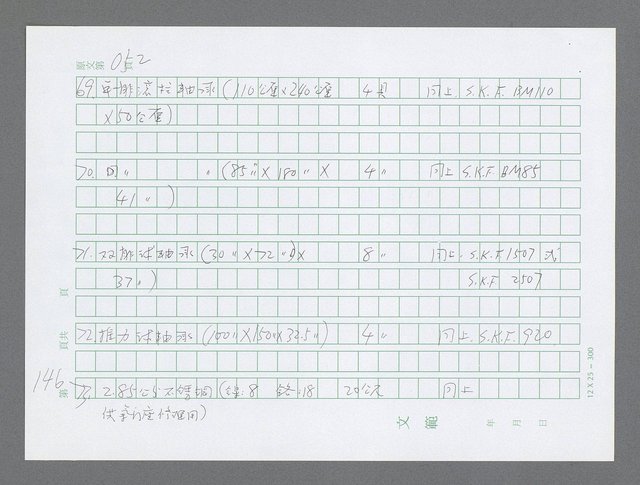 原文第052頁
69. 單排滾柱軸承(110公厘×240公厘 4具 同上 S.K.F. BM110
×50公厘)
70. 同〃 〃 (85〃×180〃× 4〃 同上 S.K.F. BM85
41〃)
71. 双排球軸承(30〃×72〃× 8〃 同上. S.K.F. 1507 式
37〃) S.K.F. 2507
72. 推力球軸承(100〃×150〃×32.5〃) 4〃 同上. S.K.F. 920
73. 2.85公分不銹鋼(鎳:8 鉻:18 20公尺 同上
頁共
頁
第146
文範
年 月 日
12 X 25 = 300